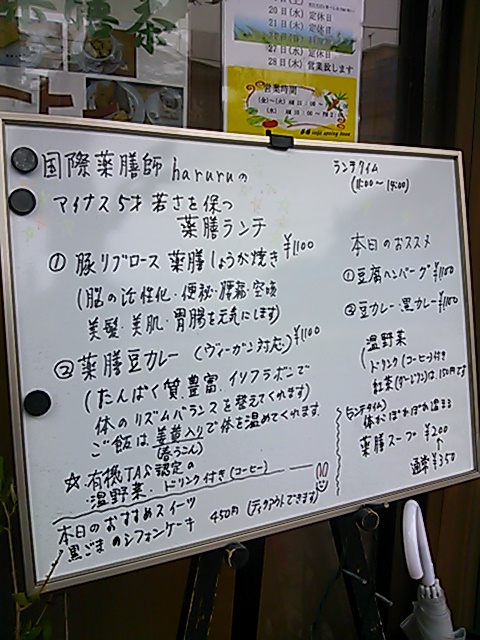 薬膳茶
20日(水)定休日
21日(木)定休日
27日(水)定休日
28日(木)営業致します
営業時間
国際薬膳師haruruの
マイナス5才若さを保つ
薬膳ランチ
①豚リブロース薬膳しょうが焼き ¥1100
(脳の活性化・便秘・腰痛・空咳
美髪・美肌・胃腸を元気にします)
②薬膳豆カレー(ヴィーガン対応) ¥1100
(たんぱく質豊富、イソフラボンで
体のリズムバランスを整えてくれます)
ご飯は姜黄入りで体を温めてくれます
(春うこん)
☆有機JAS認定の
温野菜・ドリンク付き(コーヒー)
本日のおすすめスイーツ
黒ごまのシフォンケーキ 450円(テイクアウトできます)
ランチタイム
(11:00〜14:00)
本日のおススメ
①豆腐ハンバーグ¥1100
②豆カレー黒カレー¥1100
温野菜
ドリンク(コーヒー)付き
紅茶(ダージリン)は150円です
(ランチタイム)
体ぽかぽか温まる
薬膳スープ ¥200
↑
通常¥350